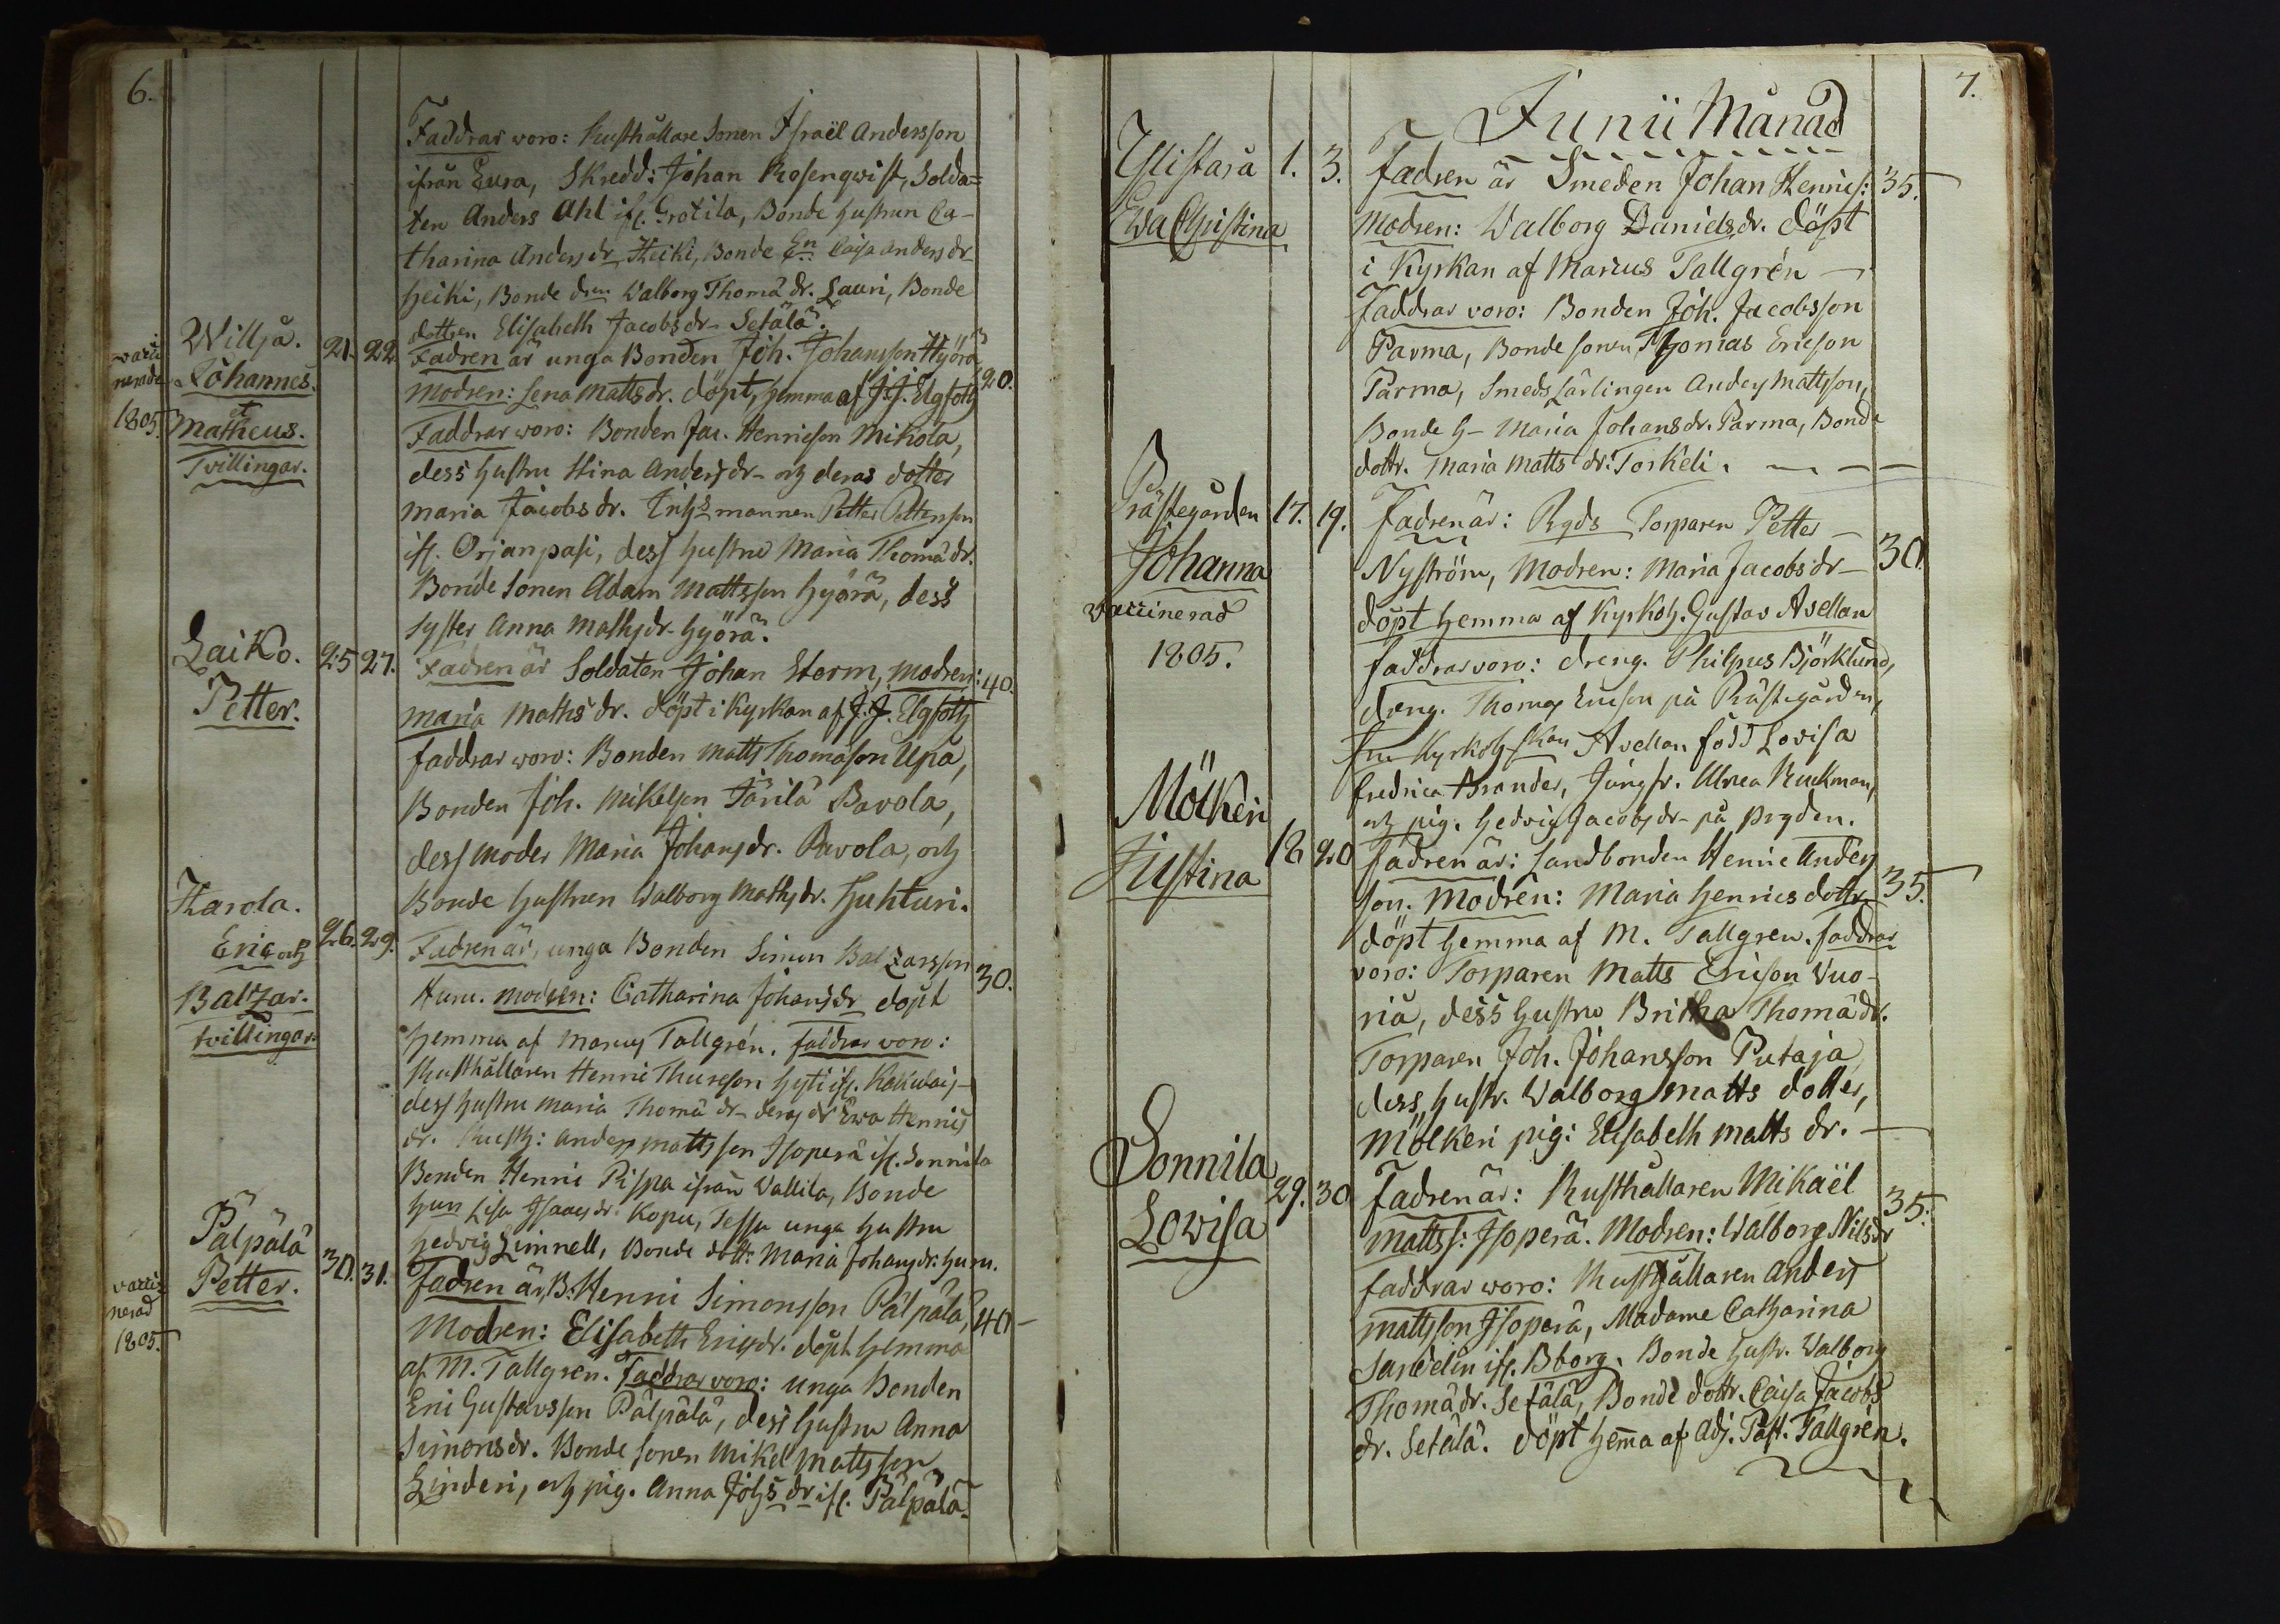 6.
Faddrar woro: Rusthållare Sonen Israël Andersson
ifrån Eura, Skredd: Johan Rosenqwist, Solda=
ten Anders Ahl ifr. Grotila, Bonde hustrun Ca-
tharina Andersdr Heiki, Bonde En Caisa andersdr
Heiki, Bonde drn Walborg Thomä dr. Lauri, Bonde
dottren Elisabeth Jacobs dr Setälä.
wacci
nerade
1805.
Willja.
Johannes.
et
Matheus.
Tvillingar.
21. 22.
Fadren är unga Bonden Joh. Johansson Hyörä
Modren: Lena Mattsdr. döpt hemma af J.J. Elgfoth 20.
Faddrar woro: Bonden Jac. Henricson Mikola,
dess hustru Stina Andersdr och deras dotter
Maria Jacobs dr. Inhs mannen Petter Pettersson
ifr. Orjanpasi, dess hustru Maria Thomädr.
Bonde Sonen Adam Mattsson Hyörä, dess
Syster Anna Mathsdr Hyörä.
Laiko.
Petter.
25 27.
Fadren är Soldaten Johan Storm, Modren: 40.
Maria Mathsdr. döpt i Kyrkan af J.J. Elgfoth
faddrar woro: Bonden Matts Thomäson Upa,
Bonden Joh. Mikelson Järilä Pavola,
dess moder Maria Johansdr. Pavola, och
Bonde hustrun Walborg Mathsdr. Huhturi.
Karola.
Eric och
Baltzar.
tvillingar.
26. 29.
Fadren är, unga Bonden Simon Baltzarsson 30.
Hum. Modren: Catharina Johansdr döpt
hemma af Marcus Tallgrén. faddrar woro:
Rusthållaren Henric Thureson Hyti ifr.
dess hustru Maria Thomä dr deras dr Ewa Henrics
dr. Rusth: Anders Mattsson Isoperä ifr. Sonnila
Bonden Henric Pispa ifrån Wallila, Bonde
hun Lisa Isaacsdr Kopu, unga hustru
Hedvig Limnell, Bonde dott: Maria Johansdr: Hum.
vacci-
nerad
1805.
Pälpälä
Petter.
30. 31.
Fadren är B. Henric Simonsson Pälpälä, 40
Modren: Elisabeth Ericsdr. döpt hemma
af M. Tallgren. Faddrar voro: unga Bonden
Eric Gustavsson Pälpälä, dess hustru Anna
Simonsdr. Bonde sonen Mikel Mattsson
Linderi, och pig. Anna Johs dr ifr. Pälpälä.
7.
Junii Månad
Ylistara
Ewa Christina
1. 3.
fadren är Smeden Johan Henrics: 35.
Modren: Walborg Danielsdr. döpt
i Kyrkan af Marcus Tallgrén
Faddrar voro: Bonden Joh. Jacobsson
Parma, Bonde sonen Thomas Ericson
Parma, Smeds Lärlingen Anders Mattsson,
Bonde h- Maria Johansdr. Parma, Bonde
dottr. Maria Matts dr. Torkeli.
Prästegården
Johanna
waccinerad
1805.
17. 19.
Fadren är: Ryds Torparen Petter
Nyström, Modren: Maria Jacobsdr 30
döpt hemma af Kyrkoh. Gustav Avellan
faddrar voro: dreng. Philpus Björklund,
dreng. Thomas Ericson på Prästegården,
fru Kyrkohskan Avellan född Lovisa
fredrica Brander, Jungfr. Ulrica Ruckman,
och pig. Hedvig Jacobsdr på Prgden.
Mölkeri
Justina
18 20
fadren är: Landbonden Henric Anders
son. Modren: Maria Henrics dottr 35.
döpt hemma af M. Tallgren. faddrar
voro: Torparen Matts Ericson Vuo-
ria, dess hustru Britha Thomädr.
Torparen Joh. Johansson Putaja
dess hustr. Walborg Matts dotter,
Mölkeri pig: Elisabeth Matts dr.
Sonnila
Lowisa
29. 30
fadren är: Rusthållaren Mikaël
Mattss: Isoperä. Modren: Walborg Nilsdr 35.
faddrar woro: Rusthållaren Anders
Mattsson Isoperä, Madame Catharina
Sandelin ifr. Bborg. Bonde hustr. Walborg
Thomädr. Setälä, Bonde dottr. Caisa Jacobs
dr. Setälä. döpt hema af Adj. Past. Tallgrén.